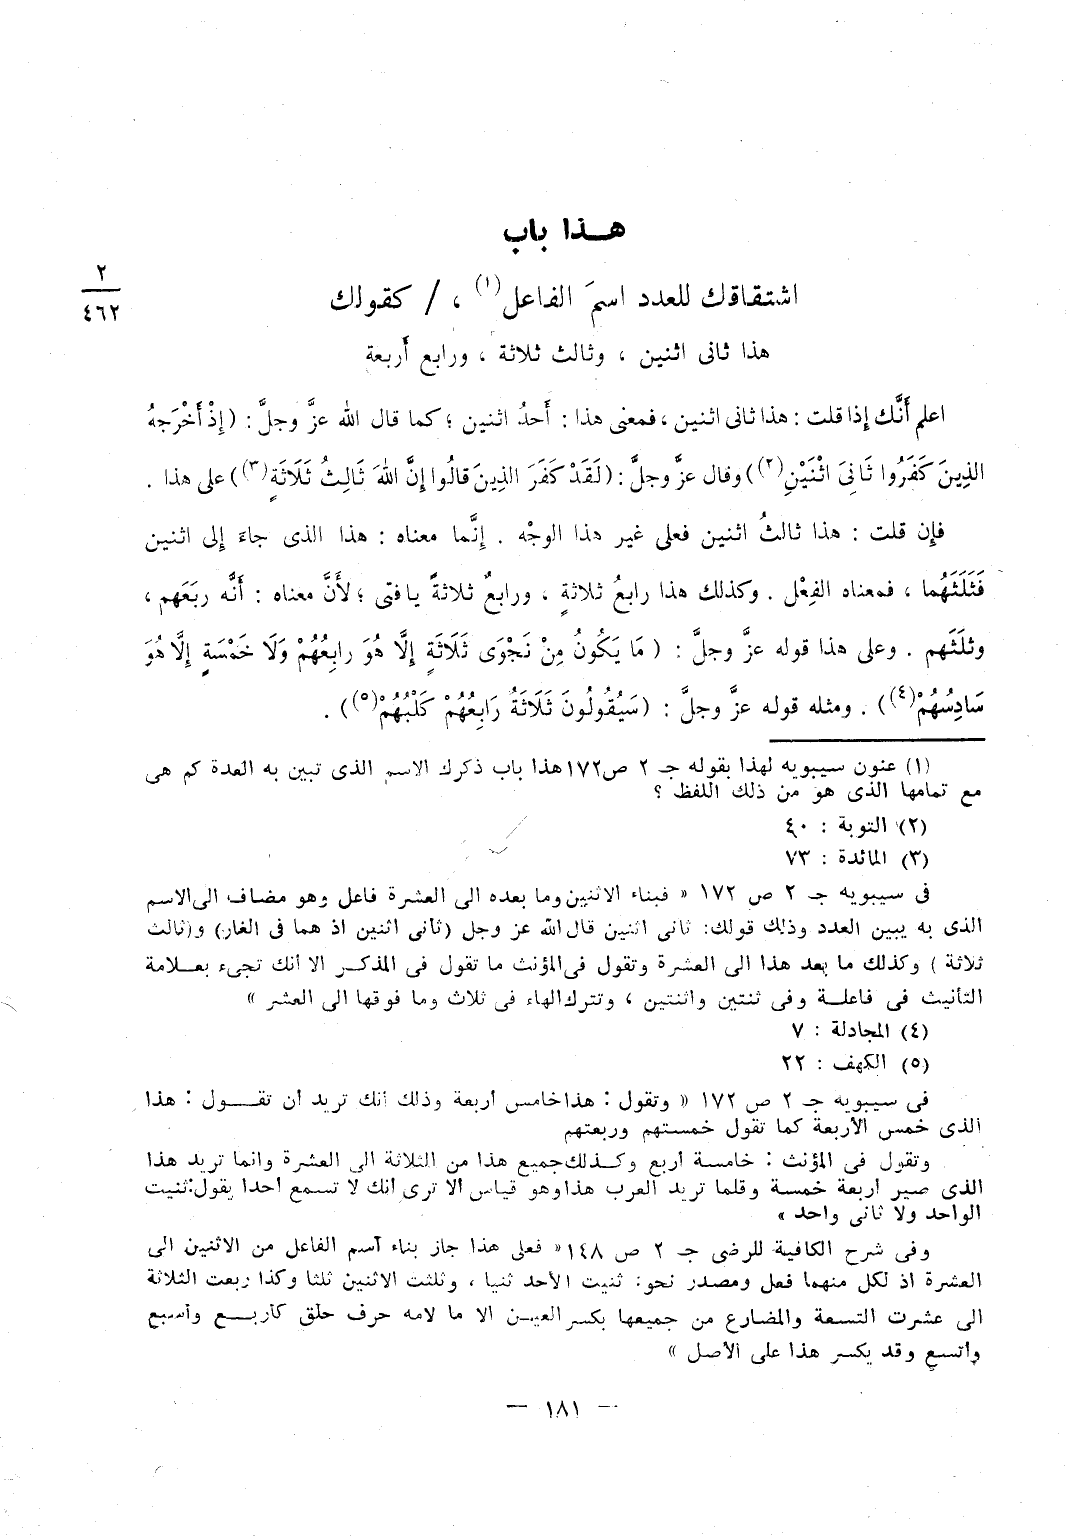 هـــذا باب
٢
٤٦٢
اشتقاقك للعدد اسمَ الفاعل(١) ، / كقولك
هذا ثانى اثنين ، وثالث ثلاثة ، ورابع أَربعة
اعلم أَنَّك إِذا قلت : هذا ثانى اثنين ، فمعنى هذا : أَحدُ اثنين ؛ كما قال الله عزَّ وجلَّ : (إِذْ أَخْرَجهُ
الذِينَ كَفَرُوا ثَانِىَ اثْنَيْنِ(٢)) وقال عزَّ وجلَّ : (لَقَدْ كَفَرَ الذِينَ قالُوا إِنَّ اللهَ ثَالِثُ ثَلَاثَةٍ(٣)) على هذا .
فإِن قلت : هذا ثالثُ اثنين فعلى غير هذا الوجْه . إِنَّما معناه : هذا الذى جاءَ إِلى اثنين
فَثَلَثَهُما ، فمعناه الفِعْل . وكذلك هذا رابعُ ثلاثةٍ ، ورابعٌ ثلاثةً يا فتى ؛ لأَنَّ معناه : أَنَّه ربَعَهم ،
وثلَثَهم . وعلى هذا قوله عزَّ وجلَّ : ( مَا يَكُونُ مِنْ نَجْوَى ثَلَاثَةٍ إِلَّا هُوَ رابِعُهُمْ وَلَا خَمْسَةٍ إِلَّا هُوَ
سَادِسُهُمْ(٤)) . ومثله قوله عزَّ وجلَّ : (سَيُقُولُونَ ثَلَاثَةٌ رَابِعُهُمْ كَلْبُهُمْ(٥)) .
(١) عنون سيبويه لهذا بقوله جـ ٢ ص١٧٢ هذا باب ذكرك الاسم الذى تبين به العدة كم هى
مع تمامها الذى هو من ذلك اللفظ ؟
(٢) التوبة : ٤٠
(٣) المائدة : ٧٣
فى سيبويه جـ ٢ ص ١٧٢ « فبناء الاثنين وما بعده الى العشرة فاعل وهو مضاف الى الاسم
الذى به يبين العدد وذلك قولك: ثانى اثنين قال الله عز وجل (ثانى اثنين اذ هما فى الغار) و(ثالث
ثلاثة ) وكذلك ما بعد هذا الى العشرة وتقول فى المؤنث ما تقول فى المذكر الا أنك تجىء بعـلامة
التأنيث فى فاعلـــة وفى ثنتين واثنتين ، وتترك الهاء فى ثلاث وما فوقها الى العشر »
(٤) المجادلة : ٧
(٥) الكهف : ٢٢
فى سيبويه جـ ٢ ص ١٧٢ « وتقول : هذا خامس أربعة وذلك أنك تريد أن تقـــول : هذا
الذى خمس الأربعة كما تقول خمستهم وربعتهم
وتقول فى المؤنث : خامسة أربع وكـذلك جميع هذا من الثلاثة الى العشرة وانما تريد هذا
الذى صير أربعة خمسة وقلما تريد العرب هذا وهو قياس ألا ترى أنك لا تسمع أحدا يقول: ثنيت
الواحد ولا ثانى واحد »
وفى شرح الكافية للرضى جـ ٢ ص ١٤٨ « فعلى هذا جاز بناء اسم الفاعل من الاثنين الى
العشرة اذ لكل منهما فعل ومصدر نحو: ثنيت الأحد ثنيا ، وثلثت الاثنين ثلثا وكذا ربعت الثلاثة
الى عشرت التسعة والمضارع من جميعها بكسر العيـن الا ما لامه حرف حلق كأربـــع وأسبع
وأتسع وقد يكسر هذا على الأصل »
— ١٨١ —